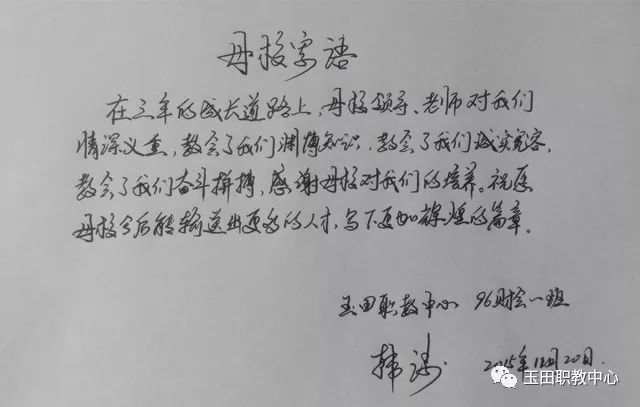 母校寄语
在三年的成长道路上,母校领导、老师对我们
情深义重,教会了我们渊博知识,教会了我们诚实宽容,
教会了我们奋斗拼搏,感谢母校对我们的培养。祝愿
母校今后能输送出更多的人才,写下更加辉煌的篇章。
玉田职教中心 96财会一班
韩 2015年11月20日.
玉田职教中心